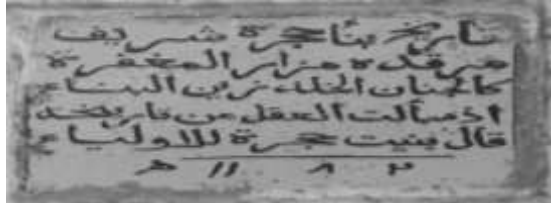 تاريخ بنا حجرة شريف
مرقده مزار المغفرة
كالجنان الخلد زين البناء
اذ سألت العقل من تاريخه
قال بنيت حجرة للاولياء